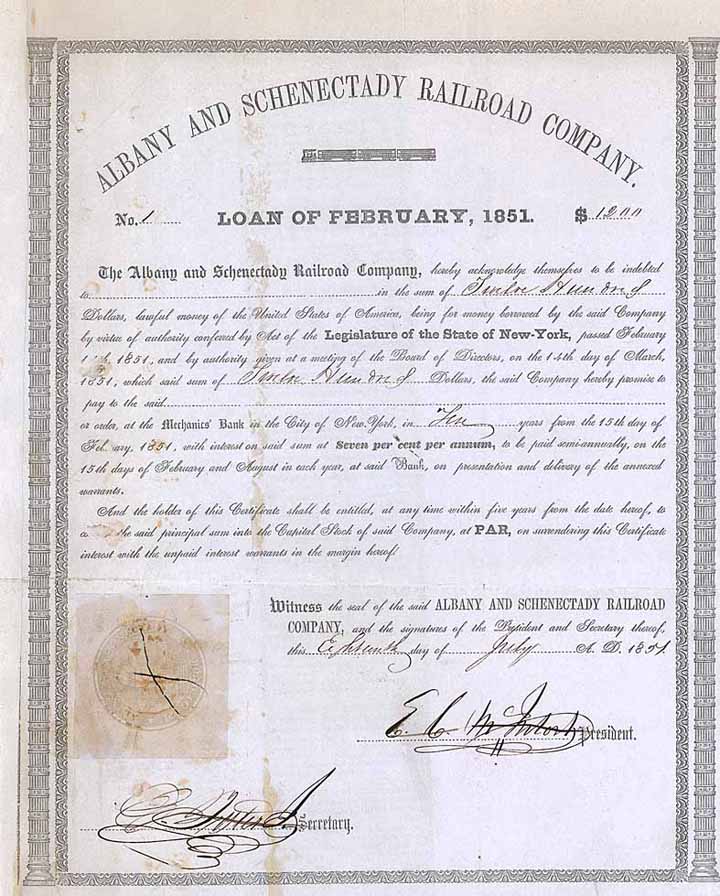 ALBANY AND SCHENECTADY RAILROAD COMPANY.
No. 1 LOAN OF FEBRUARY, 1851. $ 1200
The Albany and Schenectady Railroad Company, hereby acknowledge themselves to be indebted
to in the sum of Twelve Hundred
Dollars, lawful money of the United States of America, being for money borrowed by the said Company
by virtue of authority conferred by Act of the Legislature of the State of New-York, passed February
1851, and by authority given at a meeting of the Board of Directors, on the 14th day of March,
1851, which said sum of Twelve Hundred Dollars, the said Company hereby promise to
pay to the said
or order, at the Mechanics' Bank in the City of New-York, in Ten years from the 15th day of
February, 1851, with interest on said sum at Seven per cent per annum, to be paid semi-annually, on the
15th days of February and August in each year, at said Bank, on presentation and delivery of the annexed
warrants.
And the holder of this Certificate shall be entitled, at any time within five years from the date hereof, to
the said principal sum into the Capital Stock of said Company, at PAR, on surrendering this Certificate
interest with the unpaid interest warrants in the margin hereof.
Witness the seal of the said ALBANY AND SCHENECTADY RAILROAD
COMPANY, and the signatures of the President and Secretary thereof,
this Eighteenth day of July A. D. 1851.
E. C. McIntosh President.
Secretary.